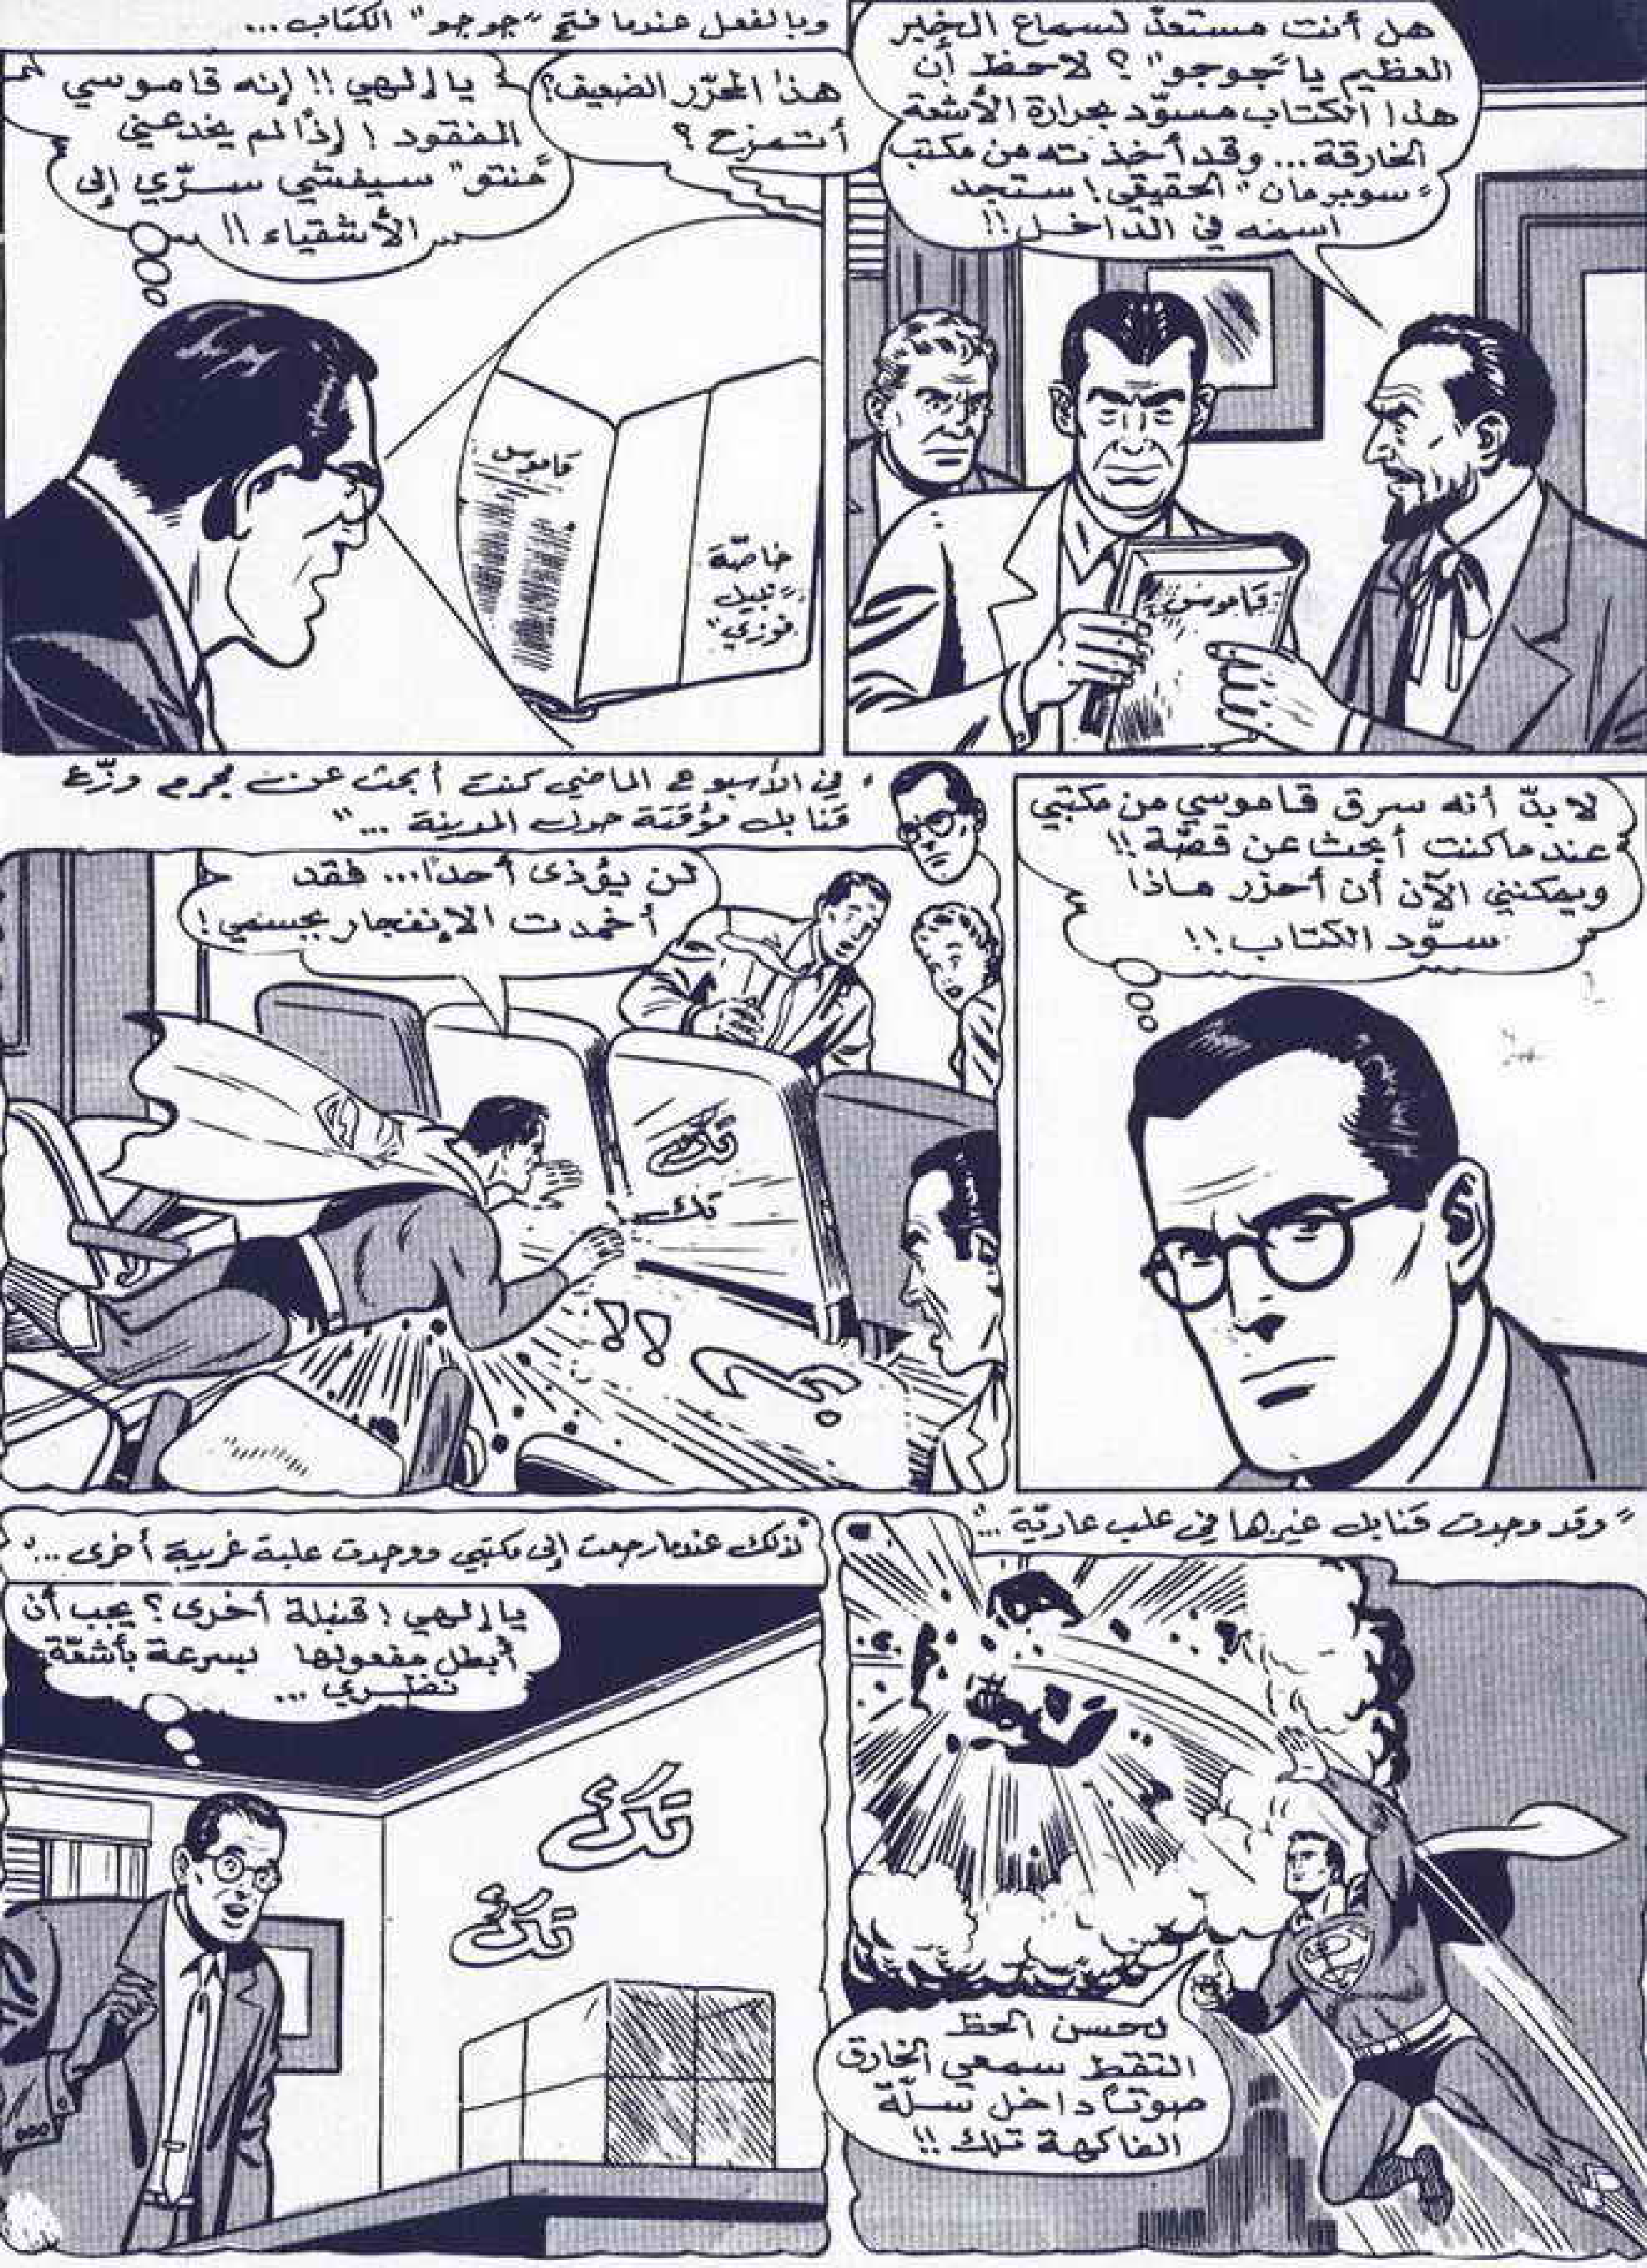 هل أنت مستعدّ لسماع الخبر
العظيم يا "جوجو"؟ لاحظ أن
هذا الكتاب مسوّد بحرارة الأشعة
الخارقة... وقد أخذته من مكتب
"سوبرمان" الحقيقي! ستجد
اسمه في الدّاخل!!
قاموس
وبالفعل عندما فتح "جوجو" الكتاب...
هذا المحرّر الضعيف؟
أتمزح؟
يا إلهي!! إنه قاموسي
المفقود! إذًا لم يخدعني
سيفشي سرّي إلى
الأشقياء!!
قاموس
خاصّة
"نبيل
فوزي"
لا بدّ أنه سرق قاموسي من مكتبي
عندما كنت أبحث عن قصّة!!
ويمكنني الآن أن أحزر ماذا
سوّد الكتاب!!
"في الأسبوع الماضي كنت أبحث عن مجرم وزّع
قنابل مؤقتة حول المدينة..."
لن يؤذى أحدًا... فقد
أخمدت الإنفجار بجسمي!
تك
تك
!!
؟
"وقد وجدت قنابل غيرها في علب عاديّة..."
لحسن الحظ
التقط سمعي الخارق
صوتًا داخل سلّة
الفاكهة تلك!!
"لذلك عندما رجعت إلى مكتبي ووجدت علبة غريبة أخرى..."
يا إلهي! قنبلة أخرى؟ يجب أن
أبطل مفعولها بسرعة بأشعّة
نظري...
تك
تك